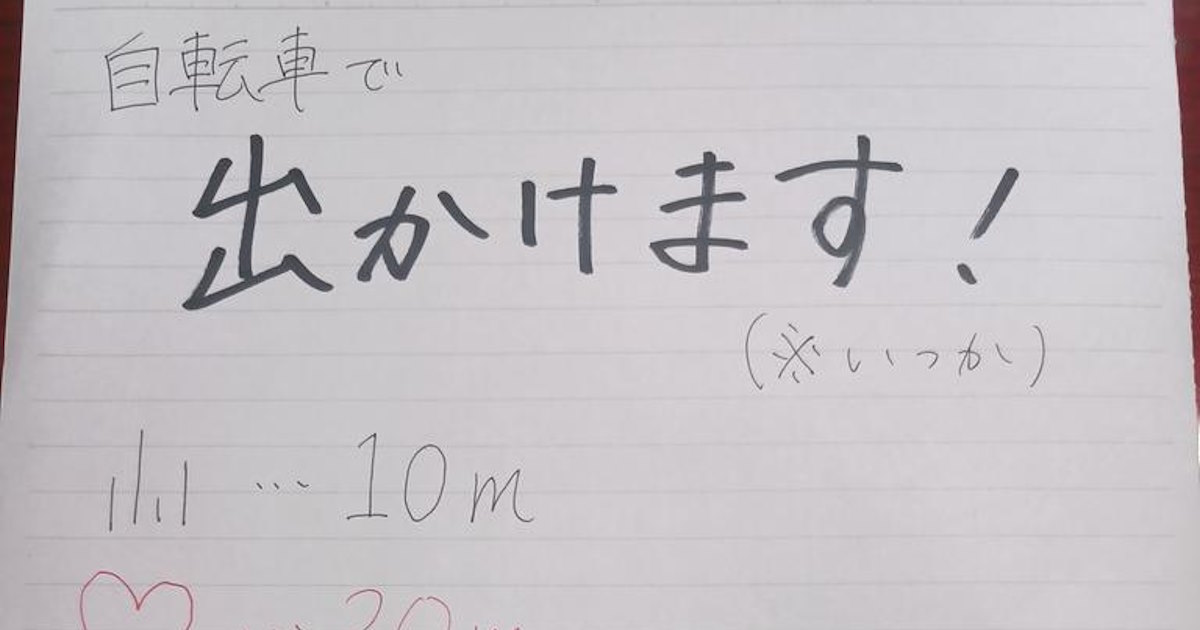 自転車で
出かけます!
(※いつか)
… 10m
… 20m